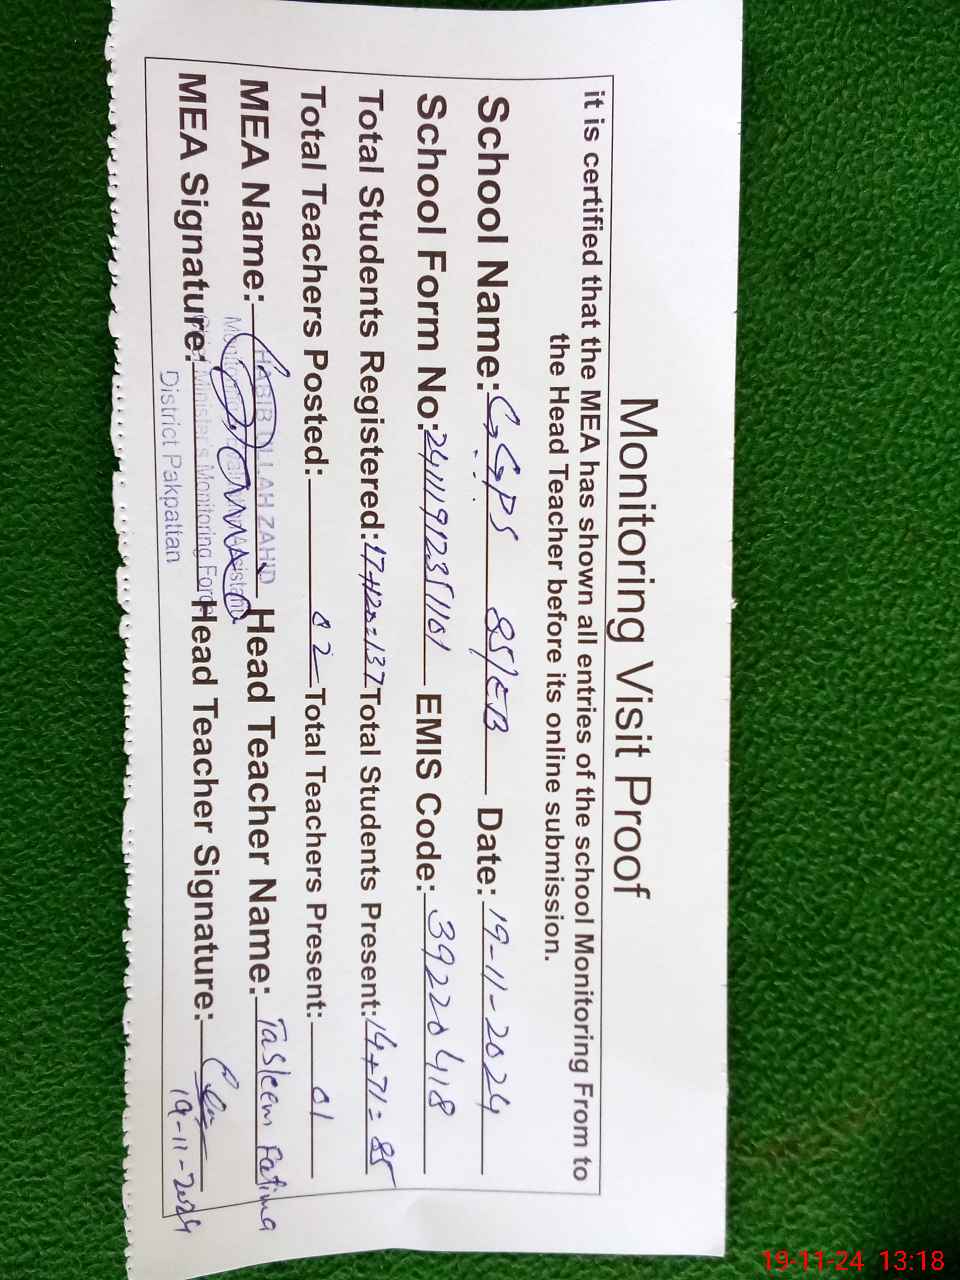 Monitoring Visit Proof
it is certified that the MEA has shown all entries of the school Monitoring From to
the Head Teacher before its online submission.
School Name: GGPS 85/EB Date: 19-11-2024
School Form No: 24111912351101 EMIS Code: 39220418
Total Students Registered: 17+120=137 Total Students Present: 14+71=85
Total Teachers Posted: 02 Total Teachers Present: 01
MEA Name: HABIB ULLAH ZAHID Head Teacher Name: Tasleem Fatima
Monitoring Assistant
MEA Signature: Minister's Monitoring Force Head Teacher Signature:
District Pakpattan
19-11-2024
19-11-24 13:18